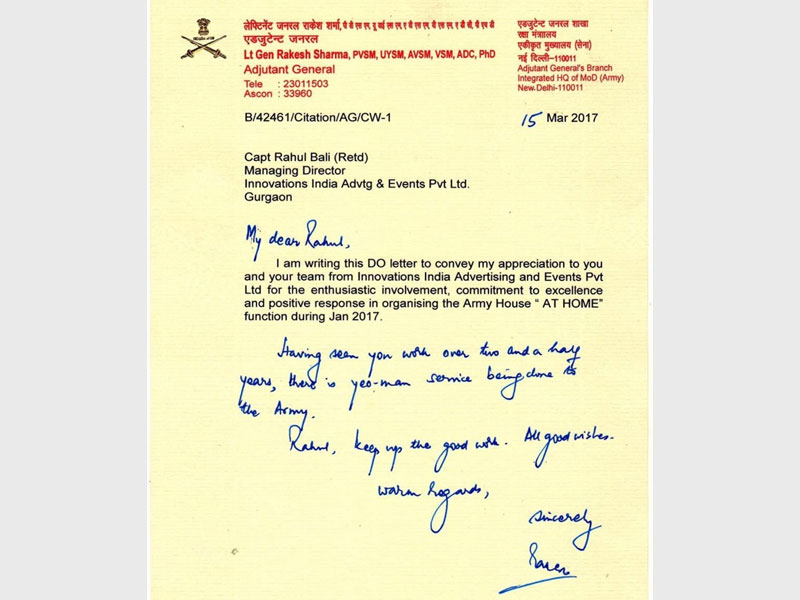 लेफ्टिनेंट जनरल राकेश शर्मा,
एडजुटेन्ट जनरल
Lt Gen Rakesh Sharma, PVSM, UYSM, AVSM, VSM, ADC, PhD
Adjutant General
Tele : 23011503
Ascon : 33960
एडजुटेन्ट जनरल शाखा
रक्षा मंत्रालय
एकीकृत मुख्यालय (सेना)
नई दिल्ली–110011
Adjutant General's Branch
Integrated HQ of MoD (Army)
New Delhi-110011
B/42461/Citation/AG/CW-1
15 Mar 2017
Capt Rahul Bali (Retd)
Managing Director
Innovations India Advtg & Events Pvt Ltd.
Gurgaon
My dear Rahul,
I am writing this DO letter to convey my appreciation to you
and your team from Innovations India Advertising and Events Pvt
Ltd for the enthusiastic involvement, commitment to excellence
and positive response in organising the Army House “ AT HOME”
function during Jan 2017.
Having seen you work over two and a half
years, there is yeo-man service being done to
the Army.
Rahul, keep up the good work. All good wishes.
Warm regards,
Sincerely